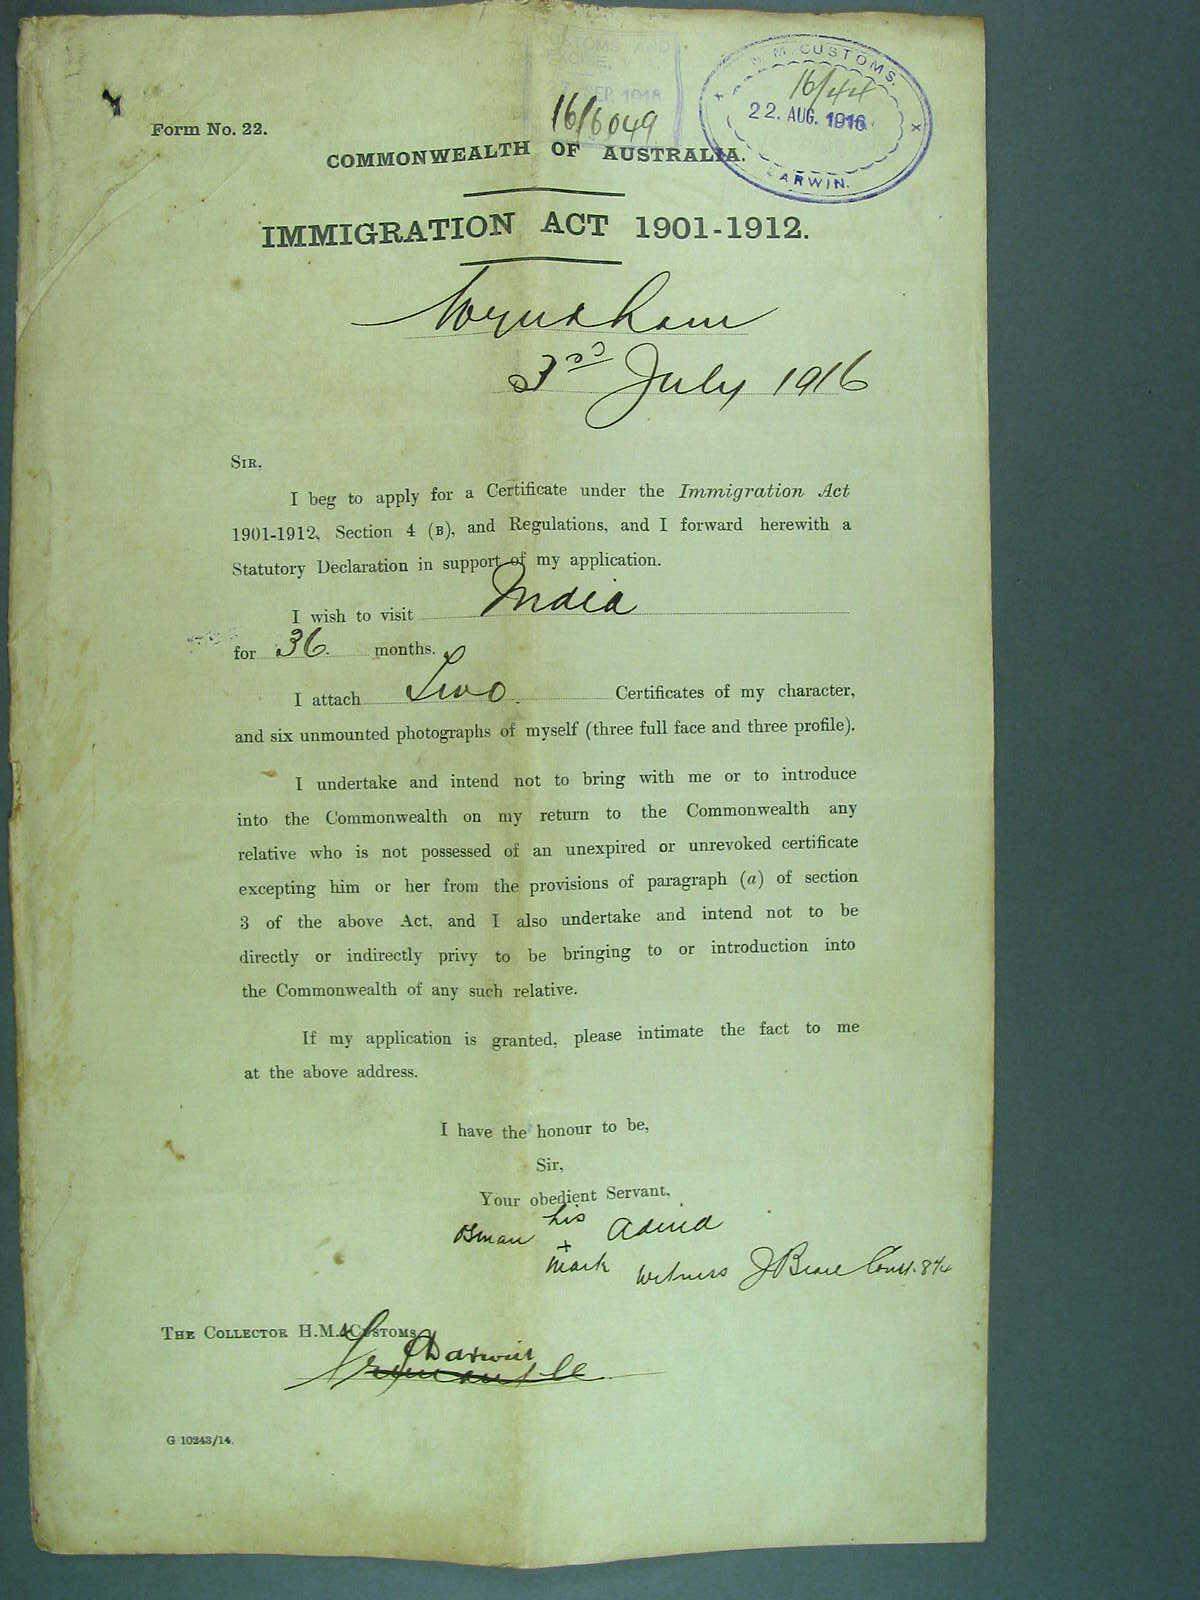 CUSTOMS AND
EXCISE, W.A.
SEP 1916
16/6049
H.M. CUSTOMS.
16/44
22. AUG. 1916
DARWIN.
Form No. 22.
COMMONWEALTH OF AUSTRALIA.
IMMIGRATION ACT 1901-1912.
Wyndham
3rd July 1916
SIR.
I beg to apply for a Certificate under the Immigration Act
1901-1912, Section 4 (B), and Regulations, and I forward herewith a
Statutory Declaration in support of my application.
I wish to visit India
for 36. months.
I attach Two. Certificates of my character,
and six unmounted photographs of myself (three full face and three profile).
I undertake and intend not to bring with me or to introduce
into the Commonwealth on my return to the Commonwealth any
relative who is not possessed of an unexpired or unrevoked certificate
excepting him or her from the provisions of paragraph (a) of section
3 of the above Act, and I also undertake and intend not to be
directly or indirectly privy to be bringing to or introduction into
the Commonwealth of any such relative.
If my application is granted, please intimate the fact to me
at the above address.
I have the honour to be,
Sir,
Your obedient Servant,
Osman his Adind
+
mark
Witness J Beare Const.
THE COLLECTOR H.M. CUSTOMS,
Darwin
Fremantle
G 10243/14.